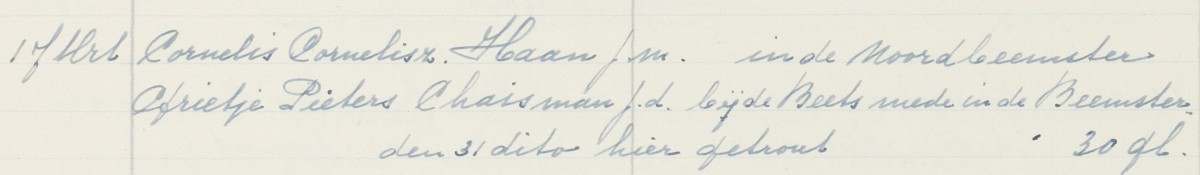 17 Mrt Cornelis Cornelisz. Haan j.m. in de Noordbeemster
Grietje Pieters Chaisman j.d. bij de Beets mede in de Beemster.
den 31 dito hier getrout 30 gl.